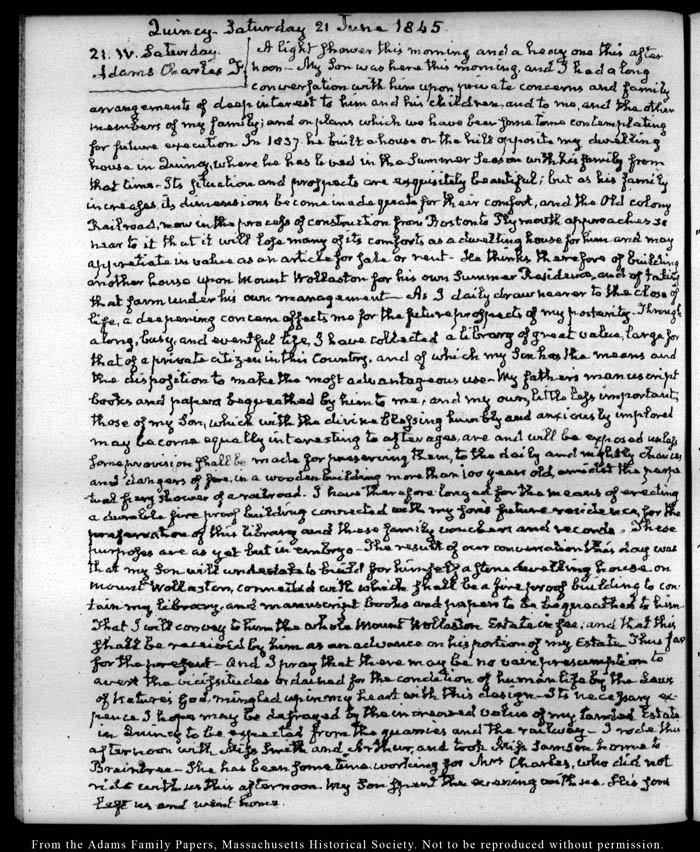 Quincy. Saturday 21 June 1845.
21. IV. Saturday.
Adams Charles F.
A light shower this morning and a heavy one this after
noon— My Son was here this morning, and I had a long
conversation with him upon private concerns and family
arrangements of deep interest to him and his children, and to me, and the other
members of my family; and on plans which we have been some time contemplating
for future execution. In 1837. he built a house on the hill opposite my dwelling
house in Quincy, where he has lived in the Summer Season with his family from
that time. Its situation and prospects are exquisitely beautiful; but as his family
increases its dimensions become inadequate for their comfort, and the Old Colony
Railroad, now in the process of construction from Boston to Plymouth approaches so
near to it that it will lose many of its comforts as a dwelling house for him and may
appreciate in value as an article for sale or rent— He thinks therefore of building
another house upon Mount Wollaston for his own Summer Residence, and of taking
that farm under his own management— As I daily draw nearer to the close of
life, a deepening concern affects me for the future prospects of my posterity. Through
a long, busy, and eventful life, I have collected a library of great value, large for
that of a private citizen in this Country, and of which my Son has the means and
the disposition to make the most advantageous use. My father's manuscript
books and papers bequeathed by him to me, and my own, little less important,
those of my Son, which with the divine blessing humbly and anxiously implored
may become equally interesting to after ages, are and will be exposed unless
some provision shall be made for preserving them, to the daily and nightly chances
and dangers of fire, in a wooden building more than 100 years old, amidst the perpe
tual fiery shower of a railroad. I have therefore longed for the means of erecting
a durable fire proof building connected with my son's future residence, for the
preservation of this library and these family vouchers and records. These
purposes are as yet but in embryo— The result of our conversation this day was
that my Son will undertake to build for himself a stone dwelling house on
Mount Wollaston, connected with which shall be a fire proof building to con
tain my library, and manuscript books and papers to be bequeathed to him
That I will convey to him the whole Mount Wollaston Estate in fee, and that this
shall be received by him as an advance on his portion of my Estate. Thus far
for the present— And I pray that there may be no vain presumption to
avert the vicissitudes ordained for the condition of human life by the Laws
of Nature's God, mingled up in my heart with this design— Its necessary ex-
pence I hope may be defrayed by the increased value of my landed Estate
in Quincy to be expected from the quarries and the railway— I rode this
afternoon with Miss Smith and Arthur, and took Miss Samson home to
Braintree— She has been some time working for Mrs Charles, who did not
ride with us this afternoon. My Son spent the evening with us. His Sons
left us and went home.
From the Adams Family Papers, Massachusetts Historical Society. Not to be reproduced without permission.